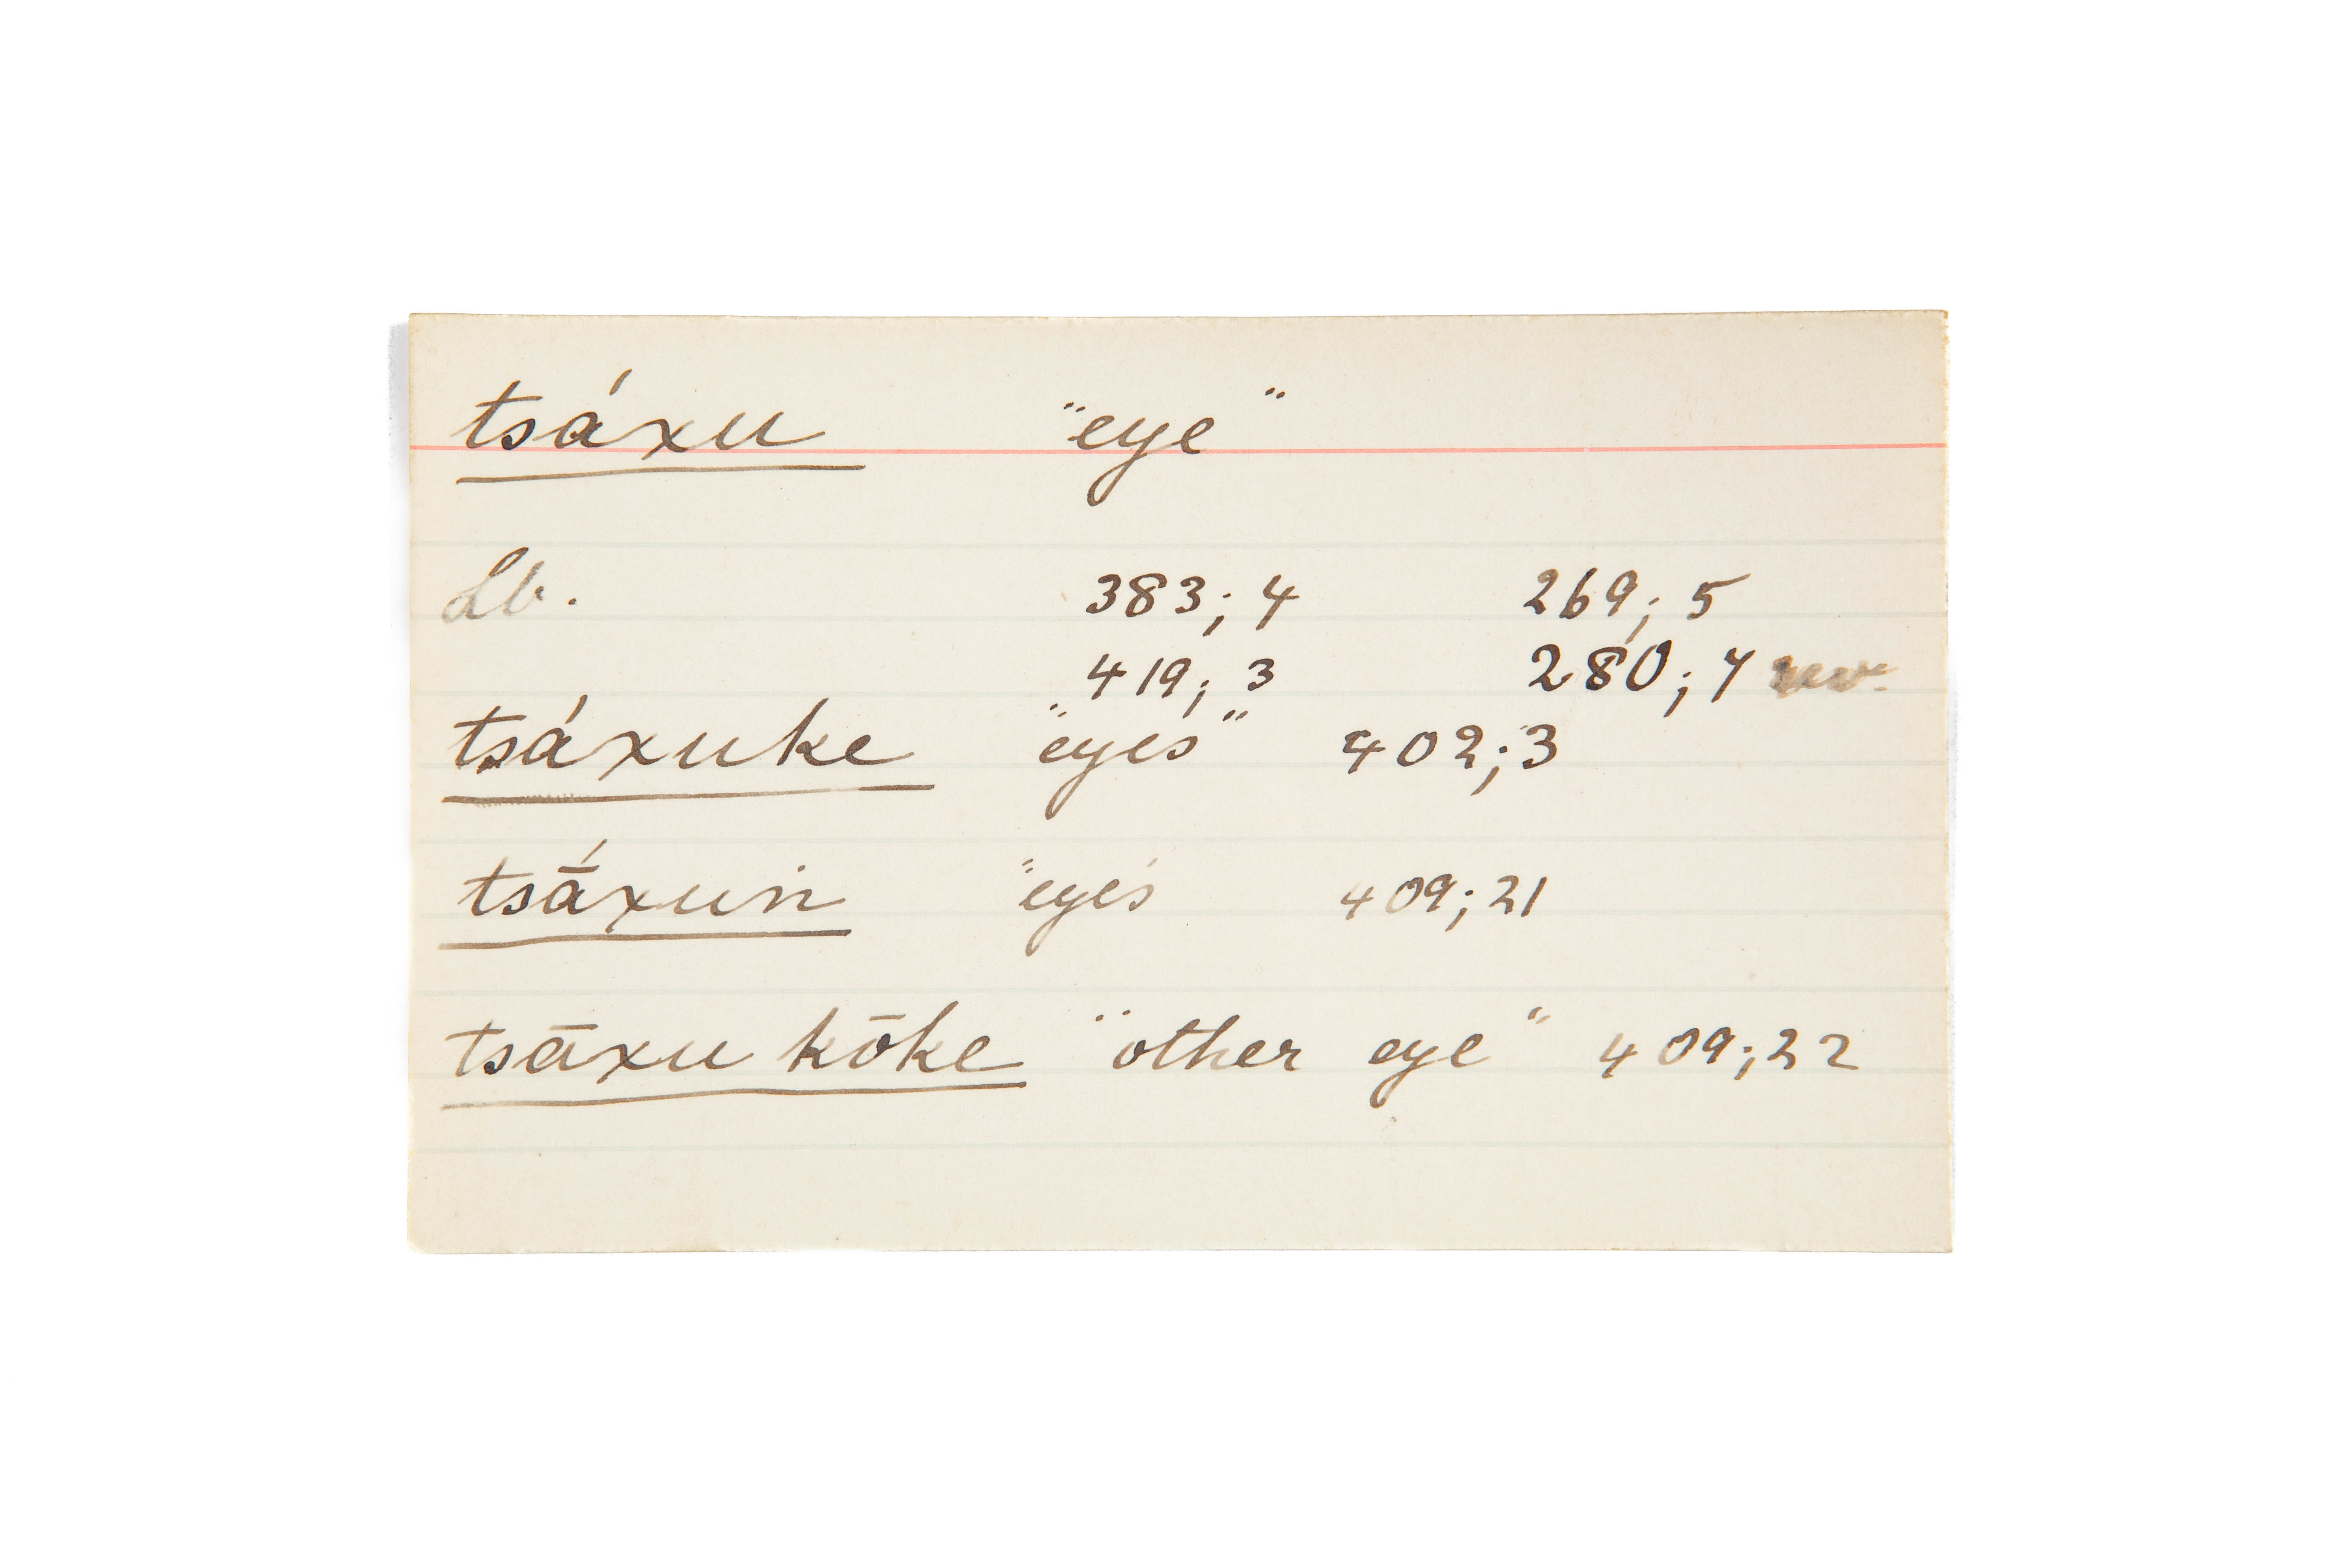 tsáxu "eye"
Lb. 383; 4 269; 5
419; 3 280; 4
tsáxuke "eyes" 402; 3
tsā́xuṅ "eyes 409; 21
tsāxu kōke "other eye" 409; 22